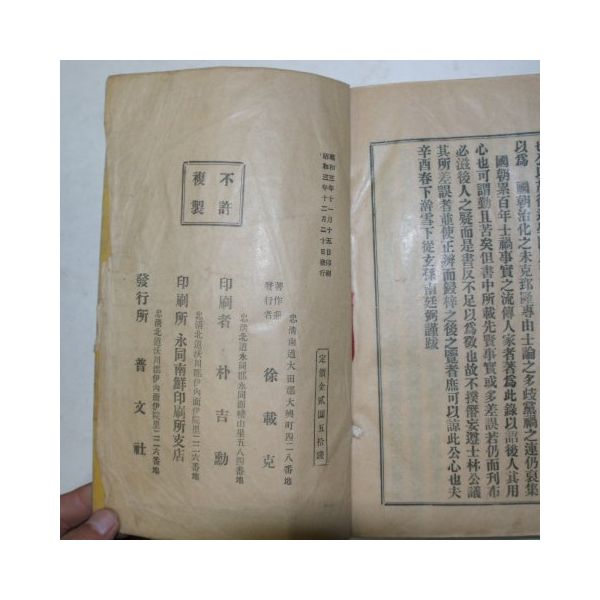 以爲 國朝治化之未克郅隆專由士論之多歧黨禍之連仍裒集
國朝累百年士禍事實之流傳人家者著爲此錄以諗後人其用
心也可謂勤且苦矣但書中所載先賢事實或多差誤若仍而刊布
必滋後人之疑而是書反不足以爲徵也故不揆僭妄遵士林公議
其所差誤者並使正遜而鋟梓之後之覽者庶可以諒此公心也夫
辛酉春下澣雪下從玄孫南廷弼謹跋
昭和三年十一月十五日印刷
昭和三年十二月二十日發行
不許
複製
定價金貳圓五拾錢
忠淸南道大田郡大興町四二八番地
著作兼
發行者 徐載克
忠淸北道永同郡永同面稽山里五八四番地
印刷者 朴吉勳
忠淸北道沃川郡伊內面伊院里二二六番地
印刷所 永同南鮮印刷所支店
忠淸北道沃川郡伊內面伊院里二二六番地
發行所 普文社